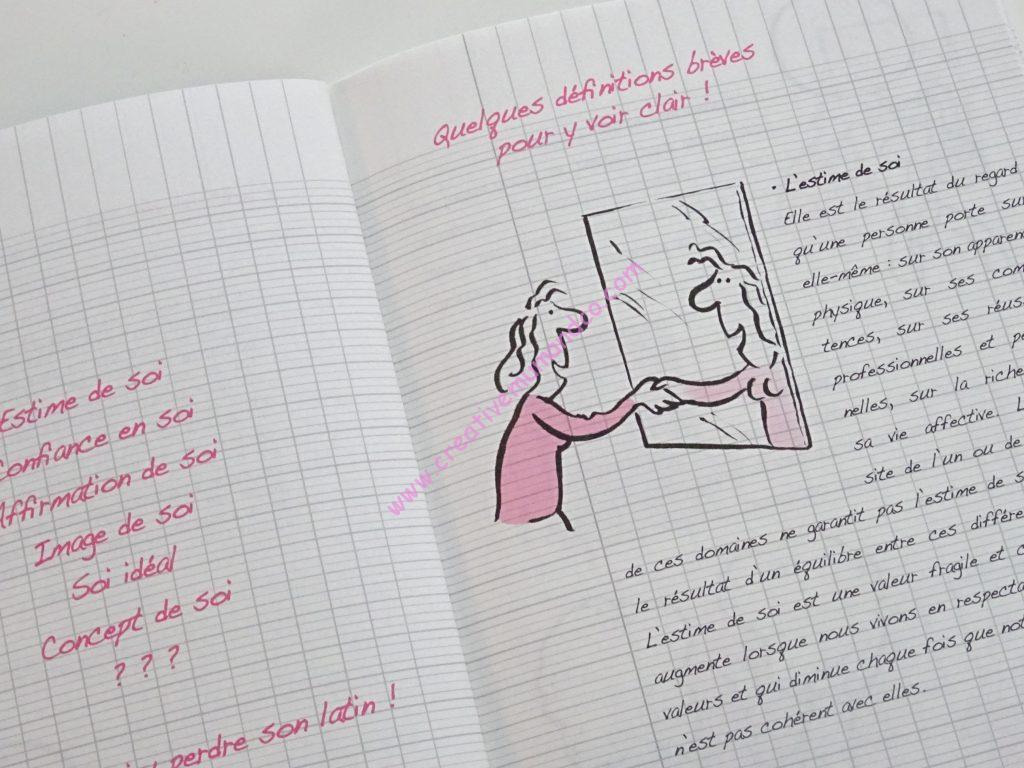 Estime de soi
Confiance en soi
Affirmation de soi
Image de soi
Soi idéal
Concept de soi
? ? ?
perdre son latin !
Quelques définitions brèves
pour y voir clair !
• L'estime de soi
Elle est le résultat du regard
qu'une personne porte sur
elle-même : sur son apparen
physique, sur ses com
tences, sur ses réus
professionnelles et pe
nelles, sur la riche
sa vie affective. L
site de l'un ou de
de ces domaines ne garantit pas l'estime de s
le résultat d'un équilibre entre ces différe
L'estime de soi est une valeur fragile et c
augmente lorsque nous vivons en respecta
valeurs et qui diminue chaque fois que not
n'est pas cohérent avec elles.
www.creativemumandco.com